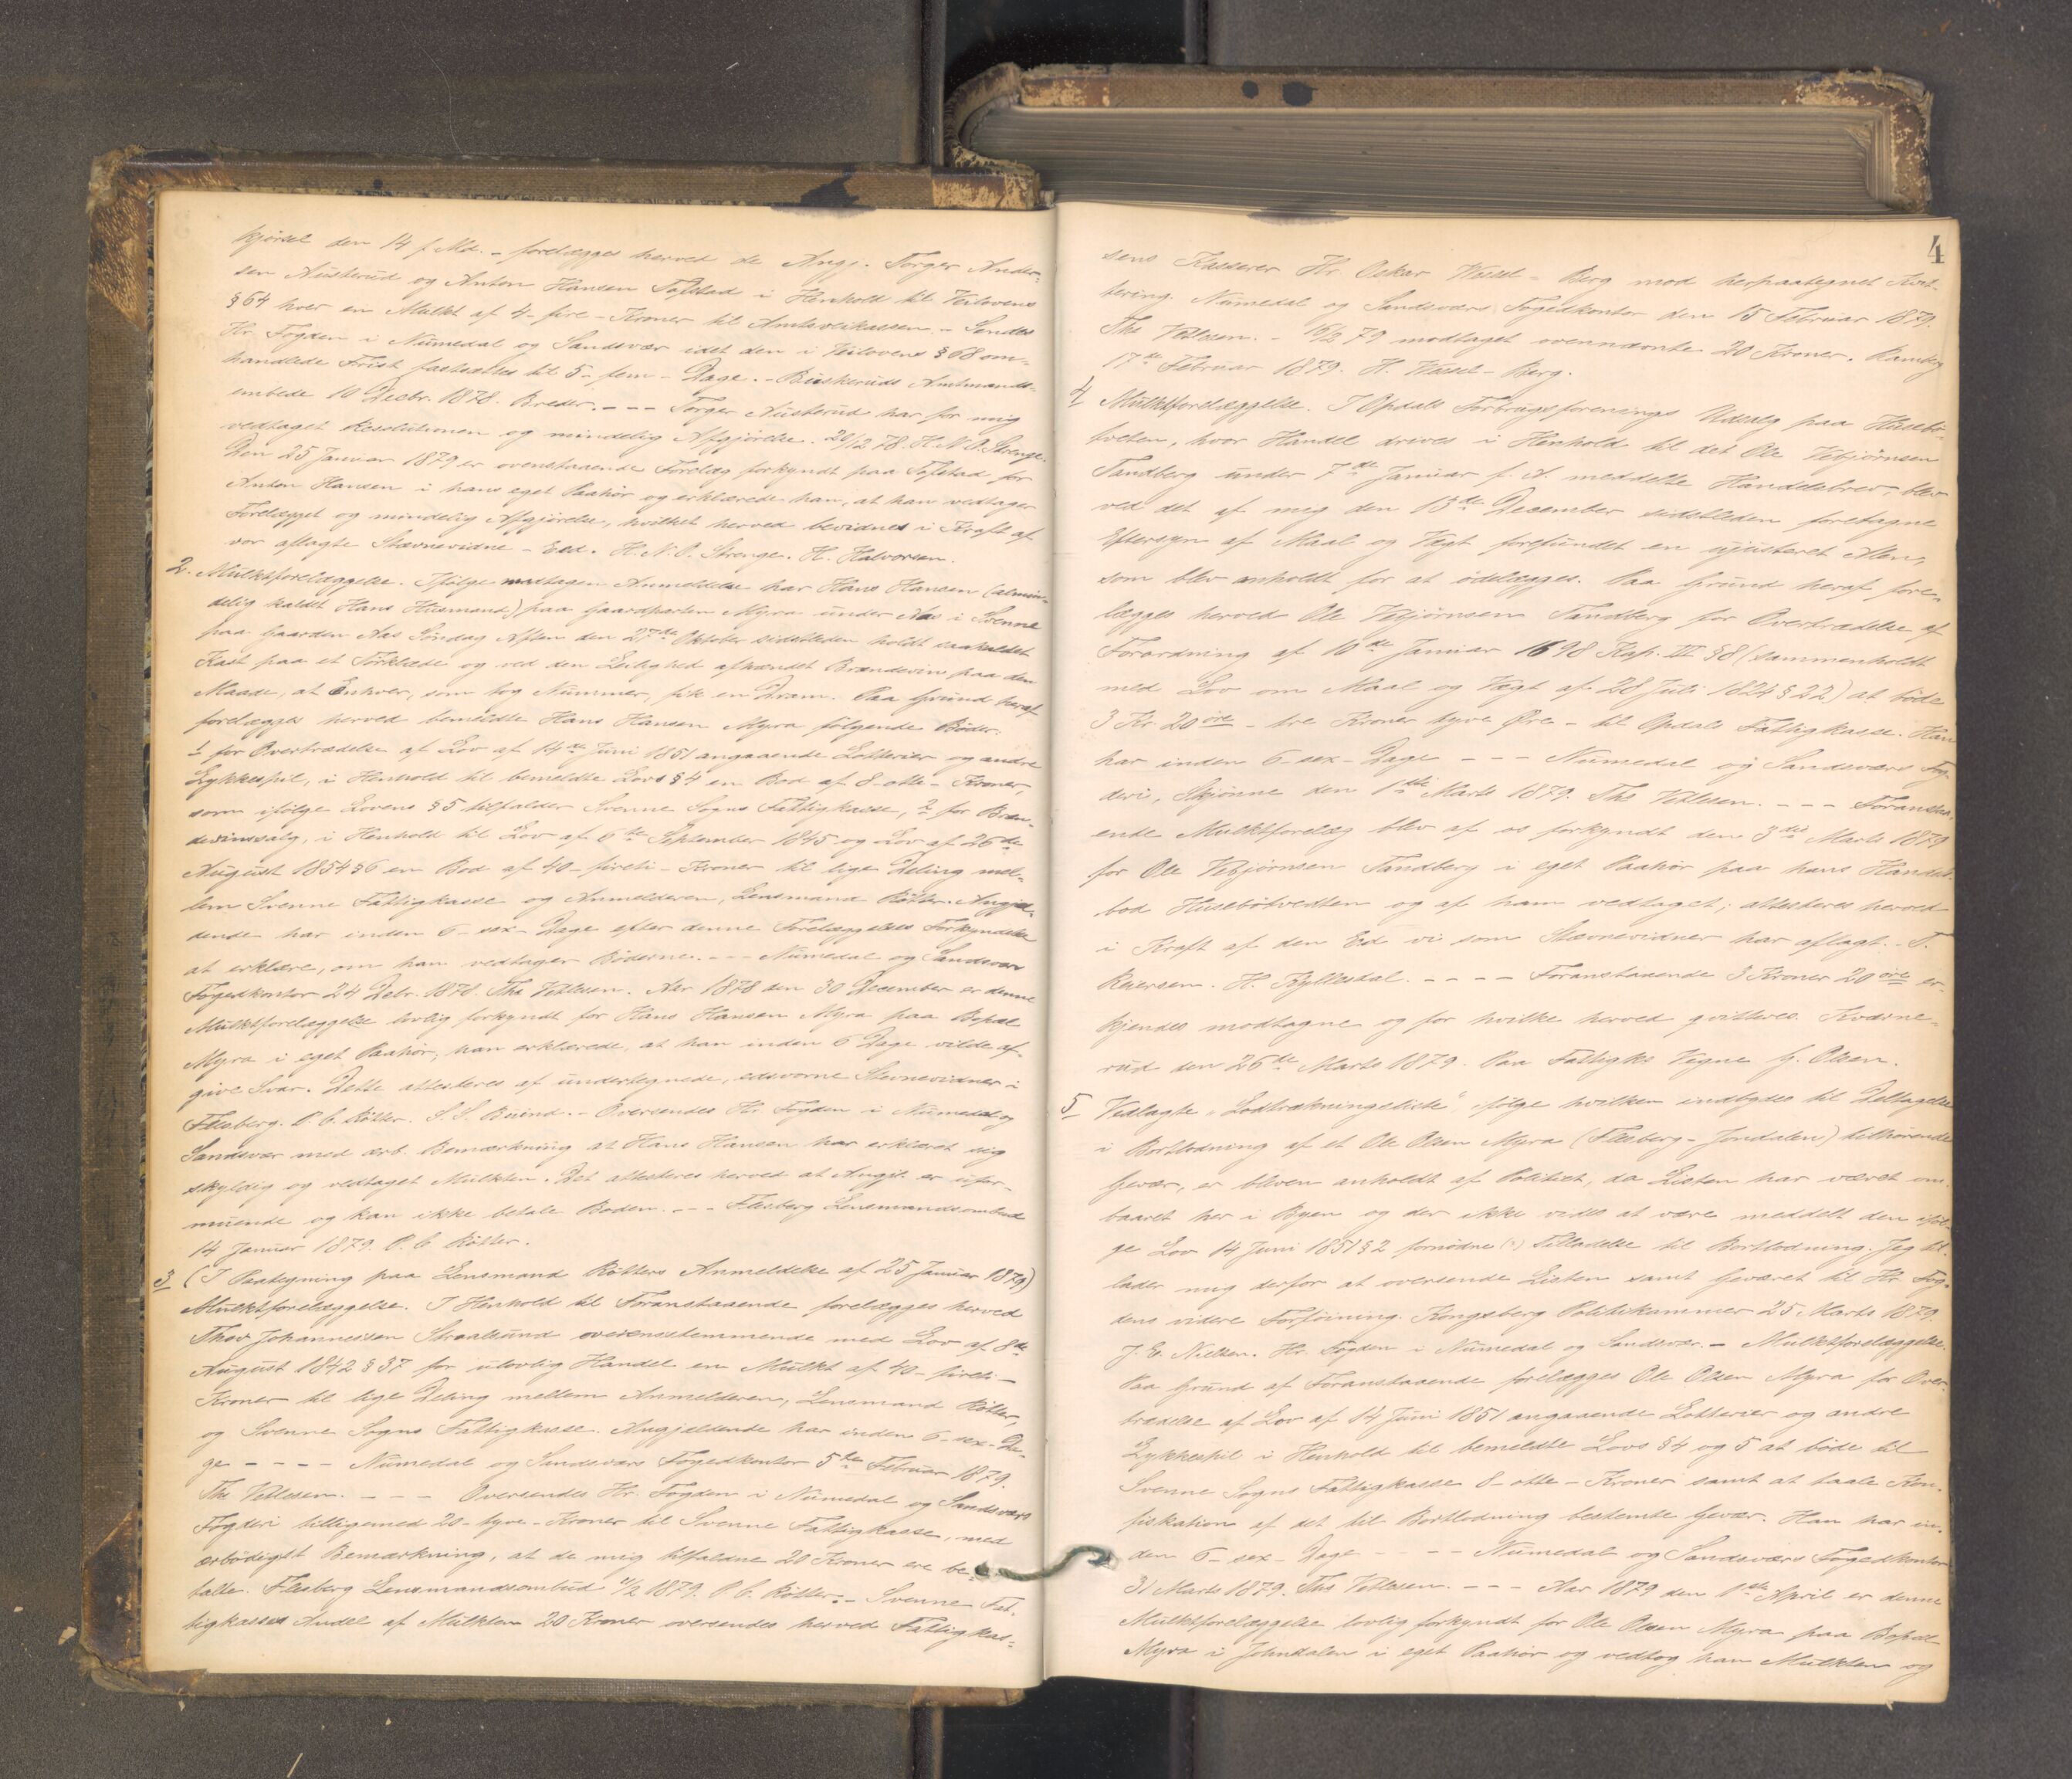 kjørsel den 14 f. Md. - forelægges herved de Angj. Torger Ander-
sen Austerud og Anton Hansen Tofstad i Henhold til Veilovens
§ 64 hver en Mulkt af 4 - fire - Kroner til Amtsveikassen. - Sendes
Hr. Fogden i Numedal og Sandsvær idet den i Veilovens § 68 om-
handlede Frist fastsættes til 5 - fem - Dage. - Buskeruds Amtmands-
embede 10 Decbr. 1878. Breder. - - - Torger Austerud har for mig
vedtaget Resolutionen og mindelig Afgjørelse. 20/12 78. H. N. O. Strenge.
Den 25 Januar 1879 er ovenstaaende Forelæg forkyndt paa Tofstad for
Anton Hansen i hans eget Paahør og erklærede han, at han vedtager
Forelægget og mindelig Afgjørelse, hvilket herved bevidnes i Kraft af
vor aflagte Stævnevidne-Eed. H. N. O. Strenge. H. Halvorsen.
2. Mulktforelæggelse. Ifølge modtagen Anmeldelse har Hans Hansen (almin-
delig kaldt Hans Husmand) paa Gaardparten Myra under Aas i Svenne
paa Gaarden Aas Søndag Aften den 27de Oktober sidstleden holdt saakaldet
Kast paa et Tørklæde og ved den Leilighed afhændet Brændevin paa den
Maade, at Enhver, som tog Nummer, fik en Dram. Paa Grund heraf
forelægges herved bemeldte Hans Hansen Myra følgende Bøder:
1 for Overtrædelse af Lov af 14de Juni 1851 angaaende Lotterier og andre
Lykkespil, i Henhold til bemeldte Lovs § 4 en Bod af 8 - otte - Kroner,
som ifølge Lovens § 5 tilfalder Svenne Sogns Fattigkasse, 2 for Bræn-
devinssalg, i Henhold til Lov af 6te September 1845 og Lov af 26de
August 1854 § 6 en Bod af 40 - firti - Kroner til lige Deling mel-
lem Svenne Fattigkasse og Anmelderen, Lensmand Røtter. Angjæl-
dende har inden 6 - sex - Dage efter denne Forelæggelses Forkyndelse
at erklære, om han vedtager Bøderne. - - - Numedal og Sandsvær
Fogedkontor 24 Debr. 1878. Ths Vetlesen. Aar 1878 den 30 December er denne
Mulktforelæggelse lovlig forkyndt for Hans Hansen Myra paa Bopæl
Myra i eget Paahør; han erklærede, at han inden 6 Dage vilde af-
give Svar. Dette attesteres af undertegnede, edsvorne Stevnevidner i
Flesberg. P. C. Røtter. S. S. Buind. - Oversendes Hr. Fogden i Numedal og
Sandsvær med ærb. Bemærkning at Hans Hansen har erklæret sig
skyldig og vedtaget Mulkten. Det attesteres herved at Angjt. er ufor-
muende og kan ikke betale Boden. - - - Flesberg Lensmandsombud
14 Januar 1879. P. C. Røtter.
3 (I Paategning paa Lensmand Røtters Anmeldelse af 25 Januar 1879)
Mulktforelæggelse. I Henhold til Foranstaaende forelægges herved
Thov Johannessen Straalsund overensstemmende med Lov af 8de
August 1842 § 37 for ulovlig Handel en Mulkt af 40 - firti -
Kroner til lige Deling mellem Anmelderen, Lensmand Røtter,
og Svenne Sogns Fattigkasse. Angjældende har inden 6 - sex - Da-
ge - - - - Numedal og Sandsværs Fogedkontor 5te Februar 1879.
Ths Vetlesen. - - - Oversendes Hr. Fogden i Numedal og Sandsværs
Fogderi tilligemed 20 - tyve - Kroner til Svenne Fattigkasse, med
ærbødigst Bemærkning, at de mig tilfaldne 20 Kroner ere be-
talte. Flesberg Lensmandsombud 11/2 1879. P. C. Røtter. - Svenne Fat-
tigkasses Andel af Mulkten 20 Kroner oversendes herved Fattigkas-
4
sens Kasserer Hr. Oskar Weset-Berg mod herpaategnet Kvit-
tering. Numedal og Sandsværs Fogedkontor den 15 Februar 1879.
Ths Vetlesen. - 16/2 79 modtaget ovennævnte 20 Kroner. Ramberg
17de Februar 1879. H. Weset-Berg.
4 Mulktforelæggelse. I Opdals Forbrugsforenings Udsalg paa Husebø-
tveten, hvor Handel drives i Henhold til det Ole Vebjørnsen
Tandberg under 7de Januar f. A. meddelte Handelsbrev, blev
ved det af mig den 13de December sidstleden foretagne
Eftersyn af Maal og Vægt forefundet en ujusteret Alen,
som blev anholdt for at ødelægges. Paa Grund heraf fore-
lægges herved Ole Vebjørnsen Tandberg for Overtrædelse af
Forordning af 10de Januar 1698 Kap. III § 8 (sammenholdt
med Lov om Maal og Vægt af 28 Juli 1824 § 22) at bøde
3 Kr 20 øre - tre Kroner tyve Øre - til Opdals Fattigkasse. Han
har inden 6 - sex - Dage - - - Numedal og Sandsværs Fog-
deri, Skjønne den 1ste Marts 1879. Ths Vetlesen. - - - Foranstaa-
ende Mulktforelæg blev af os forkyndt den 3die Marts 1879
for Ole Vebjørnsen Tandberg i eget Paahør paa hans Handels-
bod Husebøtvedten og af ham vedtaget; attesteres herved
i Kraft af den Ed vi som Stævnevidner har aflagt. T.
Reiersen. H. Kyllesdal. - - - - Foranstaaende 3 Kroner 20 øre er-
kjendes modtagne og for hvilke herved qvitteres. Kværne-
rud den 26de Marts 1879. Paa Fattigks Vegne G. Olsen.
5 Vedlagte "Lodtrækningsliste" ifølge hvilken indbydes til Deltagelse
i Bortlodning af et Ole Olsen Myra (Flesberg-Jondalen) tilhørende
Gevær, er bleven anholdt af Politiet, da Listen har været om-
baaret her i Byen og der ikke vides at være meddelt den iføl-
ge Lov 14 Juni 1851 § 2 fornødne (?) Tilladelse til Bortlodning. Jeg til-
lader mig derfor at oversende Listen samt Geværet til Hr. Fog-
dens videre Forføining. Kongsberg Politikammer 25. Marts 1879.
J. E. Nielsen. Hr. Fogden i Numedal og Sandsvær. - Mulktforelæggelse.
Paa Grund af Foranstaaende forelægges Ole Olsen Myra for Over-
trædelse af Lov af 14 Juni 1851 angaaende Lotterier og andre
Lykkespil i Henhold til bemeldte Lovs § 4 og 5 at bøde til
Svenne Sogns Fattigkasse 8 - otte - Kroner samt at taale Kon-
fiskation af det til Bortlodning bestemte Gevær. Han har in-
den 6 - sex - Dage - - - - Numedal og Sandsværs Fogedkontor
31 Marts 1879. Ths Vetlesen. - - - Aar 1879 den 1ste April er denne
Mulktforelæggelse lovlig forkyndt for Ole Olsen Myra paa Bopæl
Myra i Johndalen i eget Paahør og vedtog han Mulkten og